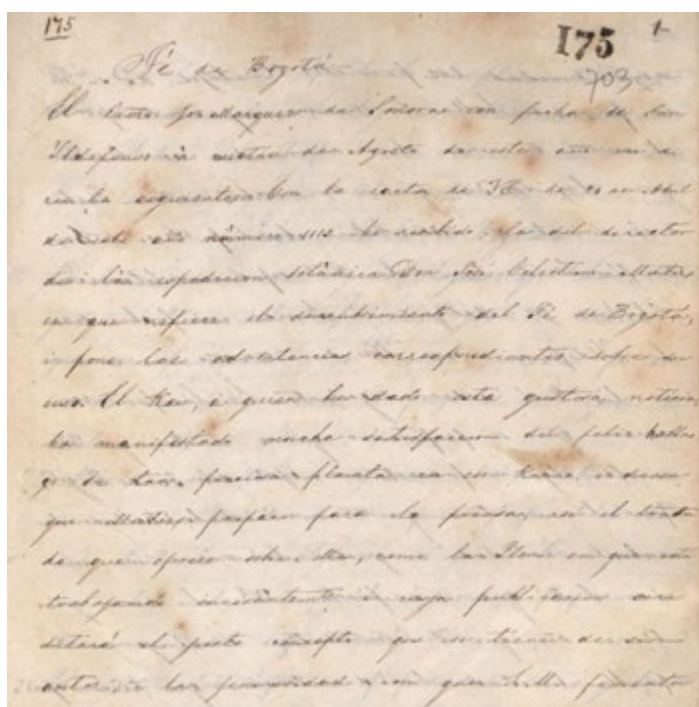 175
175 1
703
Té de Bogotá
El Marques de Sonora con fecha de San
Ildefonso à de Agosto de este me di
ce lo siguiente: Con la carta de VE de de Abril
de este año número he recibido la del director
de la espedicion botánica Don José Celestino Mutis,
en que refiere el descubrimiento del Té de Bogotá,
é pone las advertencias correspondientes sobre su
uso. El Rey, à quien he dado esta gustosa noticia,
ha manifestado mucha satisfaccion del feliz hallaz
go de tan preciosa planta en su y desea
que Mutis prepare para la prensa, asi el trata
do que ofrece sobre ella, como la Flora en que está
trabajando incesantemente i cuya publicacion acre
ditará el justo concepto que se tiene de su
autor i la generosidad con que S.M. fomenta